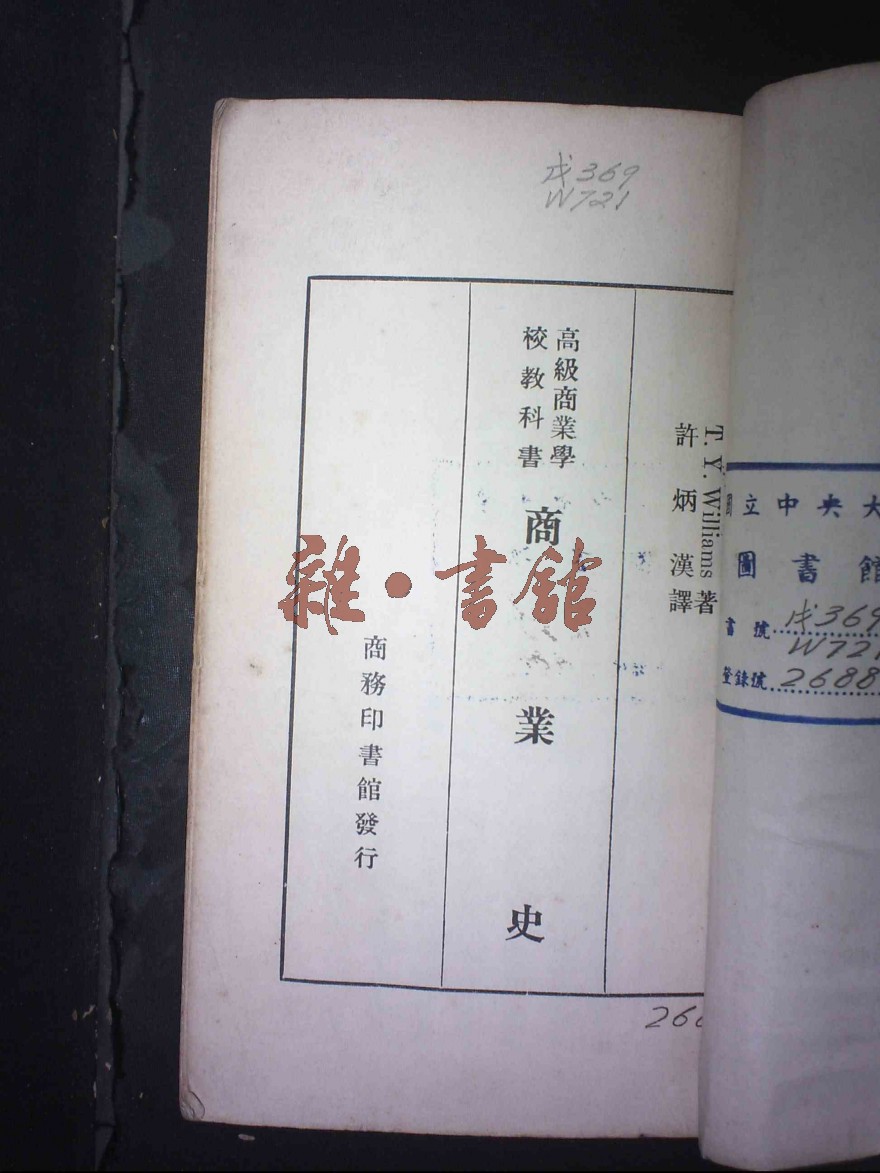 戊369
W721
T. Y. Williams 著
許炳漢譯
高級商業學
校教科書
商業史
商務印書館發行
雜·書館
立中央大
圖書館
書號 戊369
W721
登錄號 2688